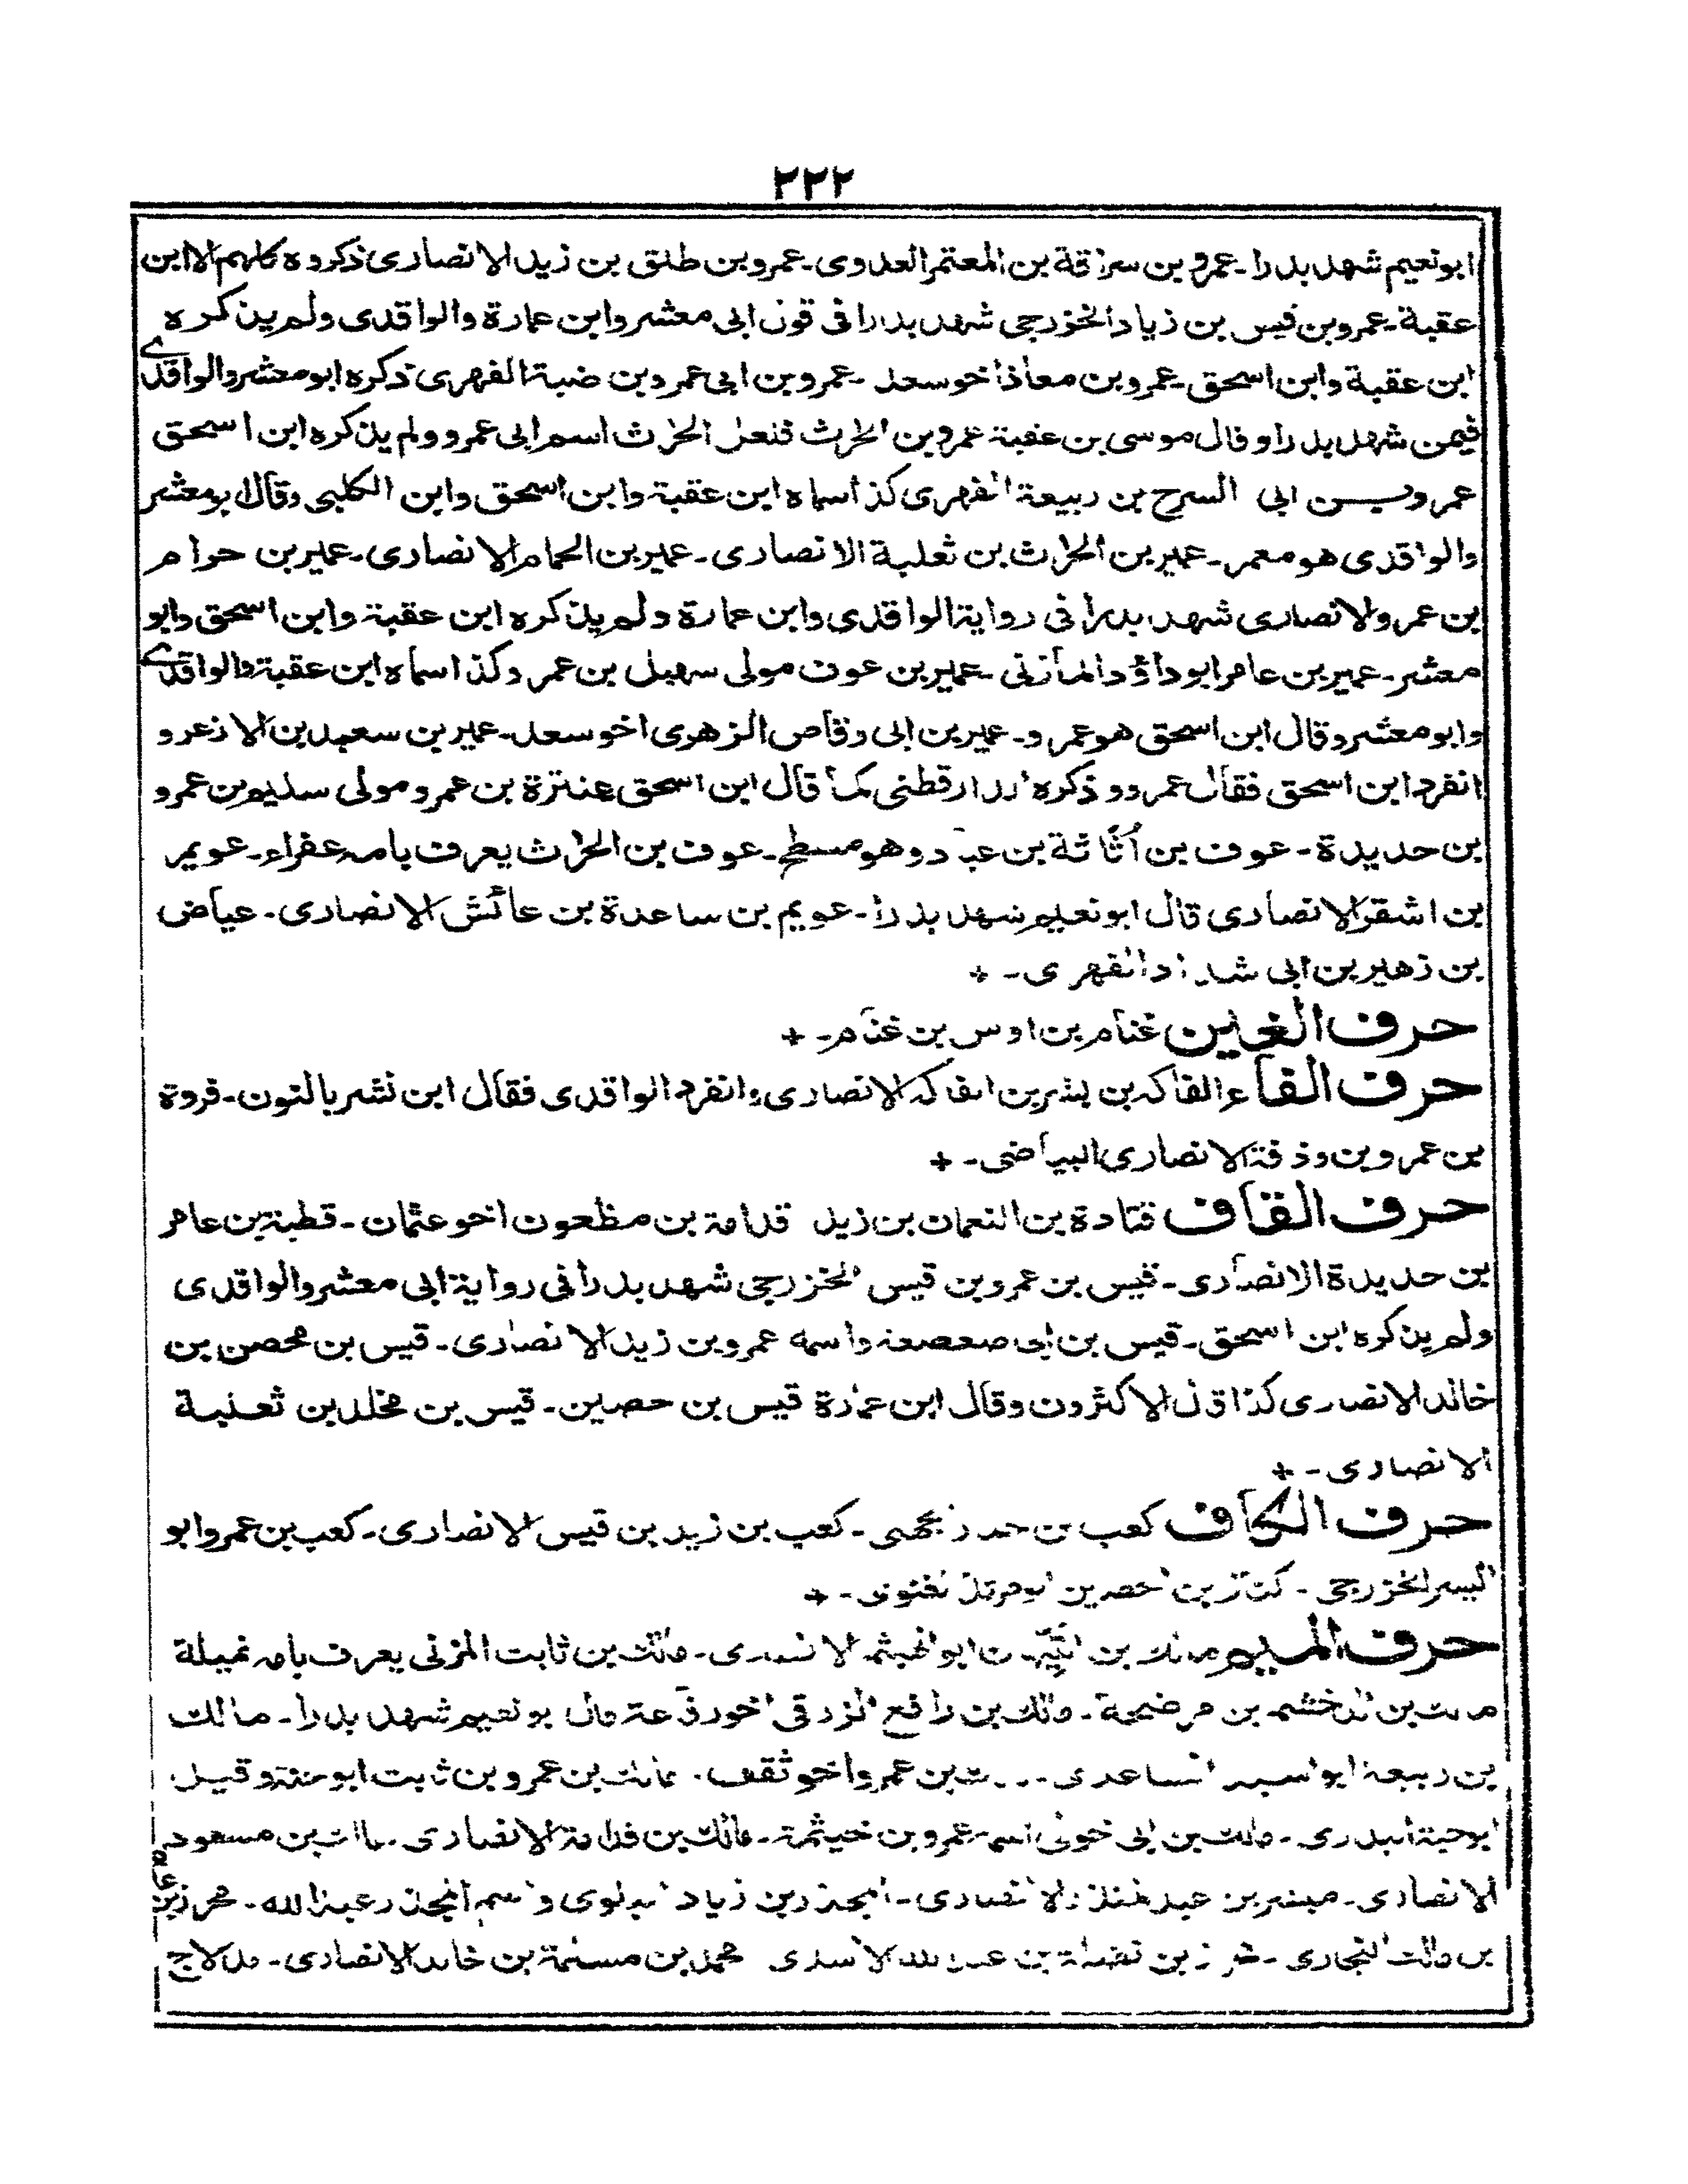 ٢٣٢
ابونعيم شهد بدرا۔ عمرو بن سراقة بن المعتمر العدوى۔ عمرو بن طلق بن زيد الانصارى ذكروه كلهم الا ابن
عقبة۔ عمرو بن قيس بن زياد الخزرجى شهد بدرا فى قول ابى معشر وابن عمارة والواقدى ولم يذكره
ابن عقبة وابن اسحق۔ عمرو بن معاذ اخو سعد۔ عمرو بن ابى عمرو بن ضبة الفهرى ذكره ابو معشر والواقدے
فيمن شهد بدرا وقال موسى بن عقبة عمرو بن الحرث فلعل الحرث اسم ابى عمرو ولم يذكره ابن اسحق
عمرو بن ابى السرح بن ربيعة الفهرى كذا سماه ابن عقبة وابن اسحق وابن الكلبى وقال ابو معشر
والواقدى هو معمر۔ عمير بن الحرث بن ثعلبة الانصارى۔ عمير بن الحمام الانصارى۔ عمير بن حرام
بن عمرو الانصارى شهد بدرا فى رواية الواقدى وابن عمارة ولم يذكره ابن عقبة وابن اسحق وابو
معشر۔ عمير بن عامر ابو داؤد المازنى۔ عمير بن عوف مولى سهيل بن عمرو كذا سماه ابن عقبة والواقدے
وابو معشر وقال ابن اسحق هو عمرو۔ عمير بن ابى وقاص الزهرى اخو سعد۔ عمير بن سعيد بن الازعر و
انفرد ابن اسحق فقال عمرو وذكره الدارقطنى كما قال ابن اسحق عنترة بن عمرو مولى سليم بن عمرو
بن حديدة۔ عوف بن أثاثة بن عباد وهو مسطح۔ عوف بن الحرث يعرف بامه عفراء۔ عويمر
بن اشقر الانصارى قال ابو نعيم شهد بدرا۔ عويم بن ساعدة بن عائش الانصارى۔ عياض
بن زهير بن ابى شداد الفهرى۔ +
حرف الغين غنام بن اوس بن غنام۔ +
حرف الفاء الفاكه بن بشر بن الفاكه الانصارى وانفرد الواقدى فقال ابن نشر بالنون۔ فروة
بن عمرو بن وذفة الانصارى البياضى۔ +
حرف القاف قتادة بن النعمان بن زيد قدامة بن مظعون اخو عثمان۔ قطبة بن عامر
بن حديدة الانصارى۔ قيس بن عمرو بن قيس الخزرجى شهد بدرا فى رواية ابى معشر والواقدى
ولم يذكره ابن اسحق۔ قيس بن ابى صعصعة واسمه عمرو بن زيد الانصارى۔ قيس بن محصن بن
خالد الانصارى كذا قال الاكثرون وقال ابن عمارة قيس بن حصين۔ قيس بن مخلد بن ثعلبة
الانصارى۔ +
حرف الكاف كعب بن الجهنى۔ كعب بن زيد بن قيس الانصارى۔ كعب بن عمرو ابو
اليسر الخزرجى۔ كناز بن الحصين ابو مرثد الغنوى۔ +
حرف الميم مالك بن التيهان ابو الهيثم الانصارى۔ مالك بن ثابت المزنى يعرف بامه نميلة
مالك بن الدخشم بن مرضخة۔ مالك بن رافع الزرقى اخو رفاعة قال ابو نعيم شهد بدرا۔ مالك
بن ربيعة ابو اسيد الساعدى۔ مالك بن عمرو اخو ثقف۔ مالك بن عمرو بن ثابت ابو حنة وقيل
ابو حية البدرى۔ مالك بن ابى خولى اسمه عمرو بن خيثمة۔ مالك بن قدامة الانصارى۔ مالك بن مسعود
الانصارى۔ مبشر بن عبد المنذر الانصارى۔ المجذر بن زياد البلوى واسم المجذر عبد الله۔ محرز بن عامر
بن مالك النجارى۔ محرز بن نضلة بن عبد الله الاسدى محمد بن مسلمة بن خالد الانصارى۔ مدلاج